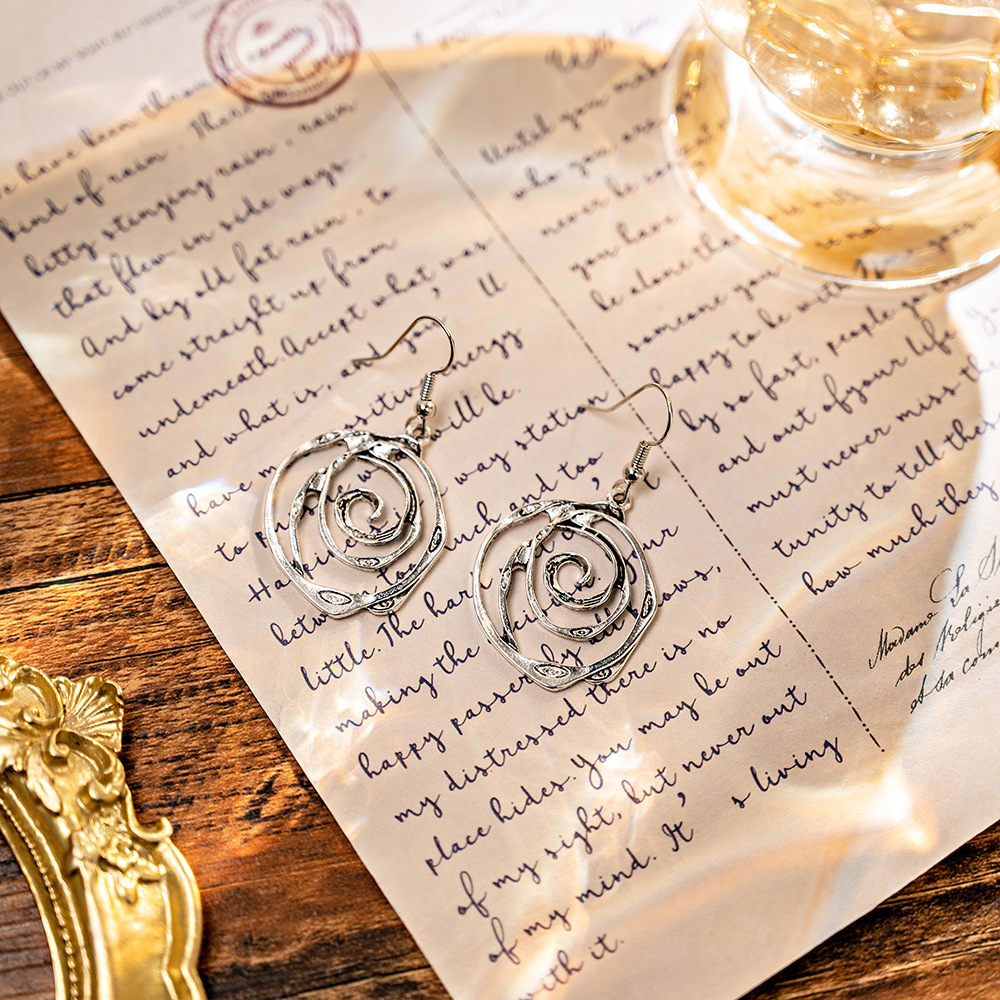 OUT OF MY SIGHT, BUT NEVER OUT
have been through
kind of rain. There
bitty stinging rain, rain
that flew in side ways.
And big old fat rain, to
come straight up from
underneath. Accept what was
and what is, and you'll
have positive energy
to will be.
Happiness way station
between too much and too
little. The hard it your
making the
happy passerby all knows,
my distressed there is no
place hides. You may be out
of my sight, but never out
of my mind. It's living
with it.
Until you make
who you are
never be con
you have
be alone tha
someone you
happy to be with
by so fast, people go
and out of your life
must never miss the
tunity to tell these
how much they
Madame La
des Religi
et sa com